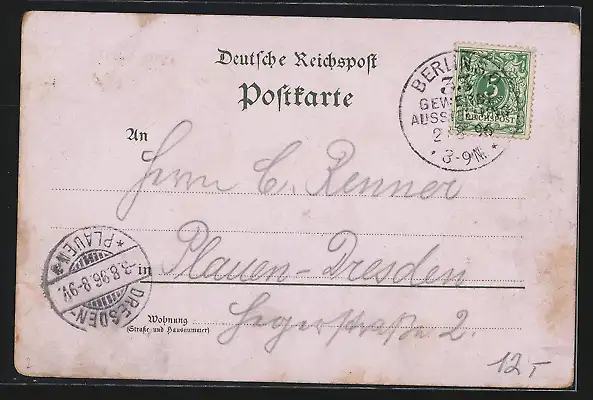 Deutsche Reichspost
Postkarte
BERLIN
GEWERBE
AUSST
96
* 8-9N. *
5
REICHSPOST
An
Herrn C. Renner
in Plauen-Dresden
Wohnung
(Straße und Hausnummer)
straße 2.
DRESDEN-
* PLAUEN *
3.8.96.8-9V.
12,-